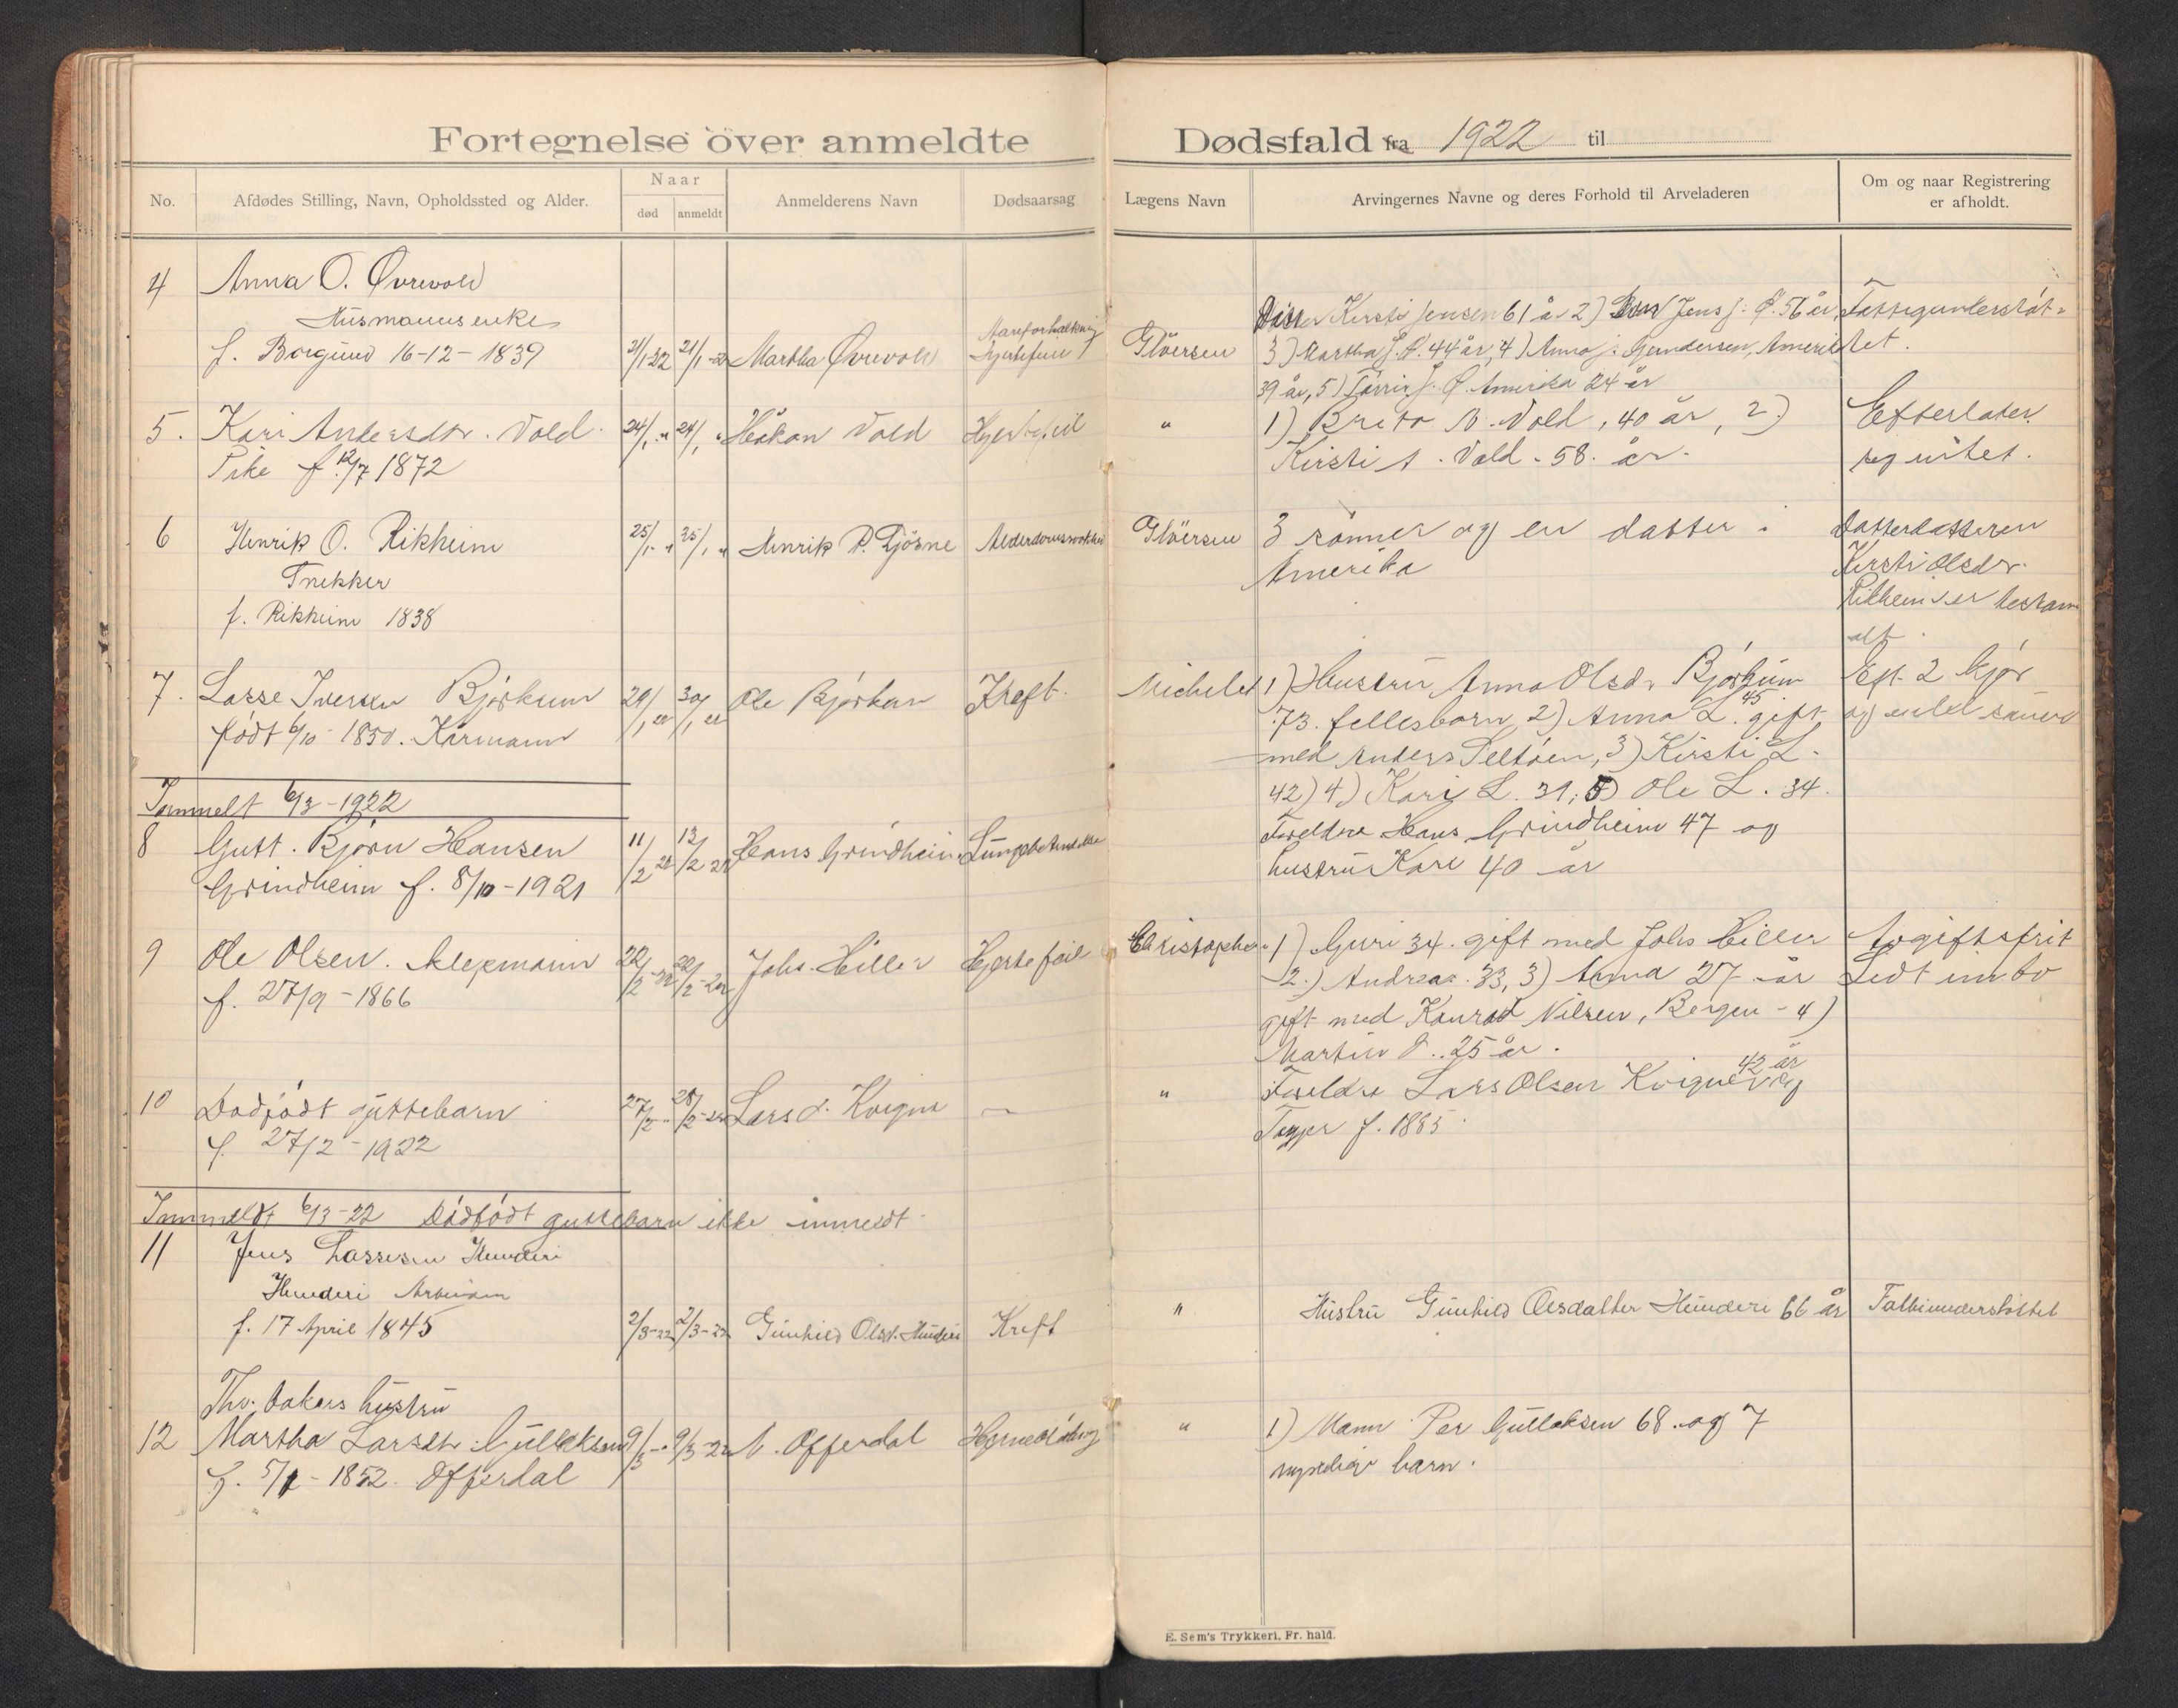 Fortegnelse over anmeldte Dødsfald fra 1922 til
No.
Afdødes Stilling, Navn, Opholdssted og Alder.
Naar
død
anmeldt
Anmelderens Navn
Dødsaarsag
Lægens Navn
Arvingernes Navne og deres Forhold til Arveladeren
Om og naar Registrering
er afholdt.
4 Anna O. Øvrevold
Husmannsenke
f. Borgund 16-12-1839
21/1-22 21/1-22 Martha Øvrevold
Hjertefeil
Gløersen
Kirsti Jensen 61 år 2) Jens J. Ø. 56 år
3) Martha J. Ø. 44 år, 4) Anna J. Gundersen, Amerika
39 år, 5) J. Ø. Amerika 24 år
Fattigunderstøt-
tet.
5. Kari Andersdtr. Vold
Pike f. 12/7 1872
24/1 " 24/1 " Håkon Vold Hjertefeil
"
1) Brita A. Vold, 40 år, 2)
Kirsti A. Vold. 58. år.
Efterlater
seg intet.
6 Henrik O. Rikheim
Snekker
f. Rikheim 1838
25/1 " 25/1 " Henrik P. Tjøsne
Gløersen
3 sønner og en datter i
Amerika
Datterdatteren
Kirsti Olsdr.
Rikheim er testam
alt.
7. Lasse Iversen Bjørkum
født 6/10 1850. Kårmann
29/1 22 30/1 22 Ole Bjørkum Kreft.
Michelet
1) Hustru Anna Olsdr Bjørkum
73. fellesbarn 2) Anna L. 45 gift
med Anders, 3) Kirsti L.
42) 4) Kari L. 31; 5) Ole L. 34.
Eft. 2 kjør
og endel sauer
Innmelt 6/3-1922
8 Gutt. Bjørn Hansen
Grindheim f. 8/10-1921
11/2 22 13/2 22 Hans Grindheim
Foreldre Hans Grindheim 47 og
hustru Kari 40 år
9 Ole Olsen.
f. 27/9-1866
22/2-22 22/2-22 Johs. Hiller Hjertefeil
1) Guri 34. gift med Johs Hiller
2.) Andreas. 33, 3) Anna 27 år
gift med Konrad Nilsen, Bergen - 4)
Martin O.. 25 år.
Avgiftsfrit
10 Dødfødt guttebarn
f. 27/2-1922
27/2- 28/2-22 Lars O. Kvigne —
"
Foreldre Lars Olsen Kvigne 42 år og
f. 1885
Innmeldt 6/3-22 Dødfødt guttebarn ikke inmeldt.
11 Jens Lassesen Hunderi
Hunderi
f. 17 April 1845
2/3-22 2/3-22 Gunhild Olsd. Hunderi Kreft
"
Hustru Gunhild Olsdatter Hunderi 66 år
Fattiunderstøttet
hustru
12 Martha Larsdtr. Gullaksen
f. 5/1-1852. Offerdal
9/3-" 9/3-22 A. Offerdal
"
1) Mann Per Gullaksen 68. og 7
myndige barn.
E. Sem's Trykkeri, Fr. hald.